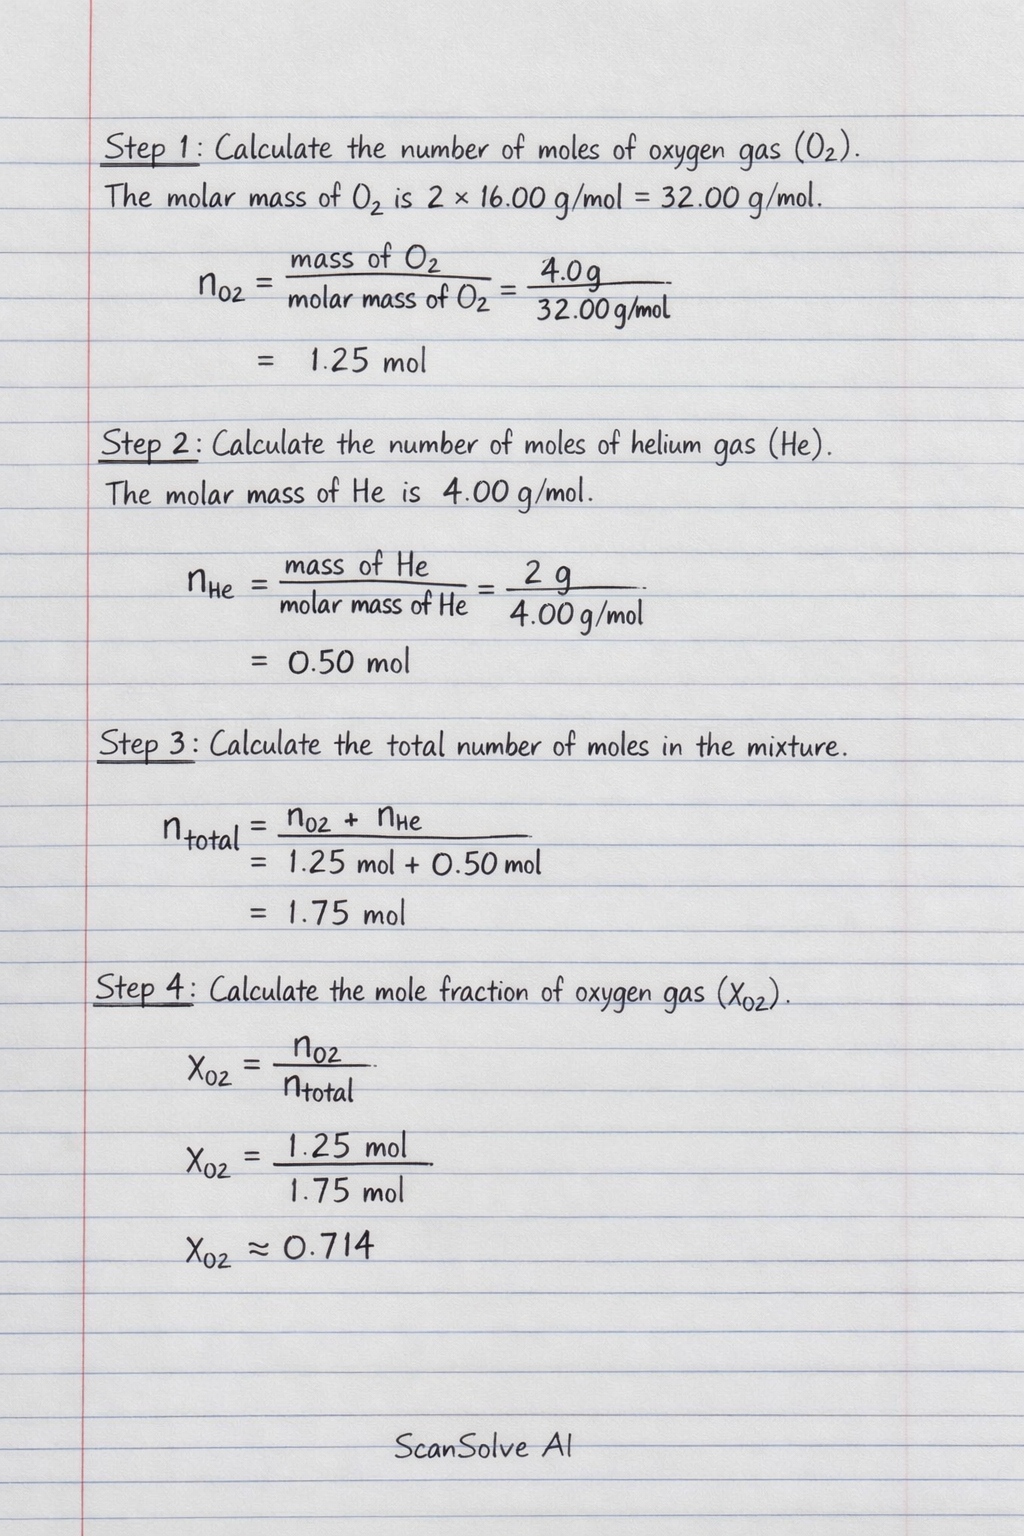 Step 1: Calculate the number of moles of oxygen gas (O₂).
The molar mass of O₂ is 2 × 16.00 g/mol = 32.00 g/mol.
n_O2 = mass of O₂ / molar mass of O₂ = 4.0g / 32.00 g/mol
= 1.25 mol
Step 2: Calculate the number of moles of helium gas (He).
The molar mass of He is 4.00 g/mol.
n_He = mass of He / molar mass of He = 2 g / 4.00 g/mol
= 0.50 mol
Step 3: Calculate the total number of moles in the mixture.
n_total = n_O2 + n_He
= 1.25 mol + 0.50 mol
= 1.75 mol
Step 4: Calculate the mole fraction of oxygen gas (X_O2).
X_O2 = n_O2 / n_total
X_O2 = 1.25 mol / 1.75 mol
X_O2 ≈ 0.714
ScanSolve AI